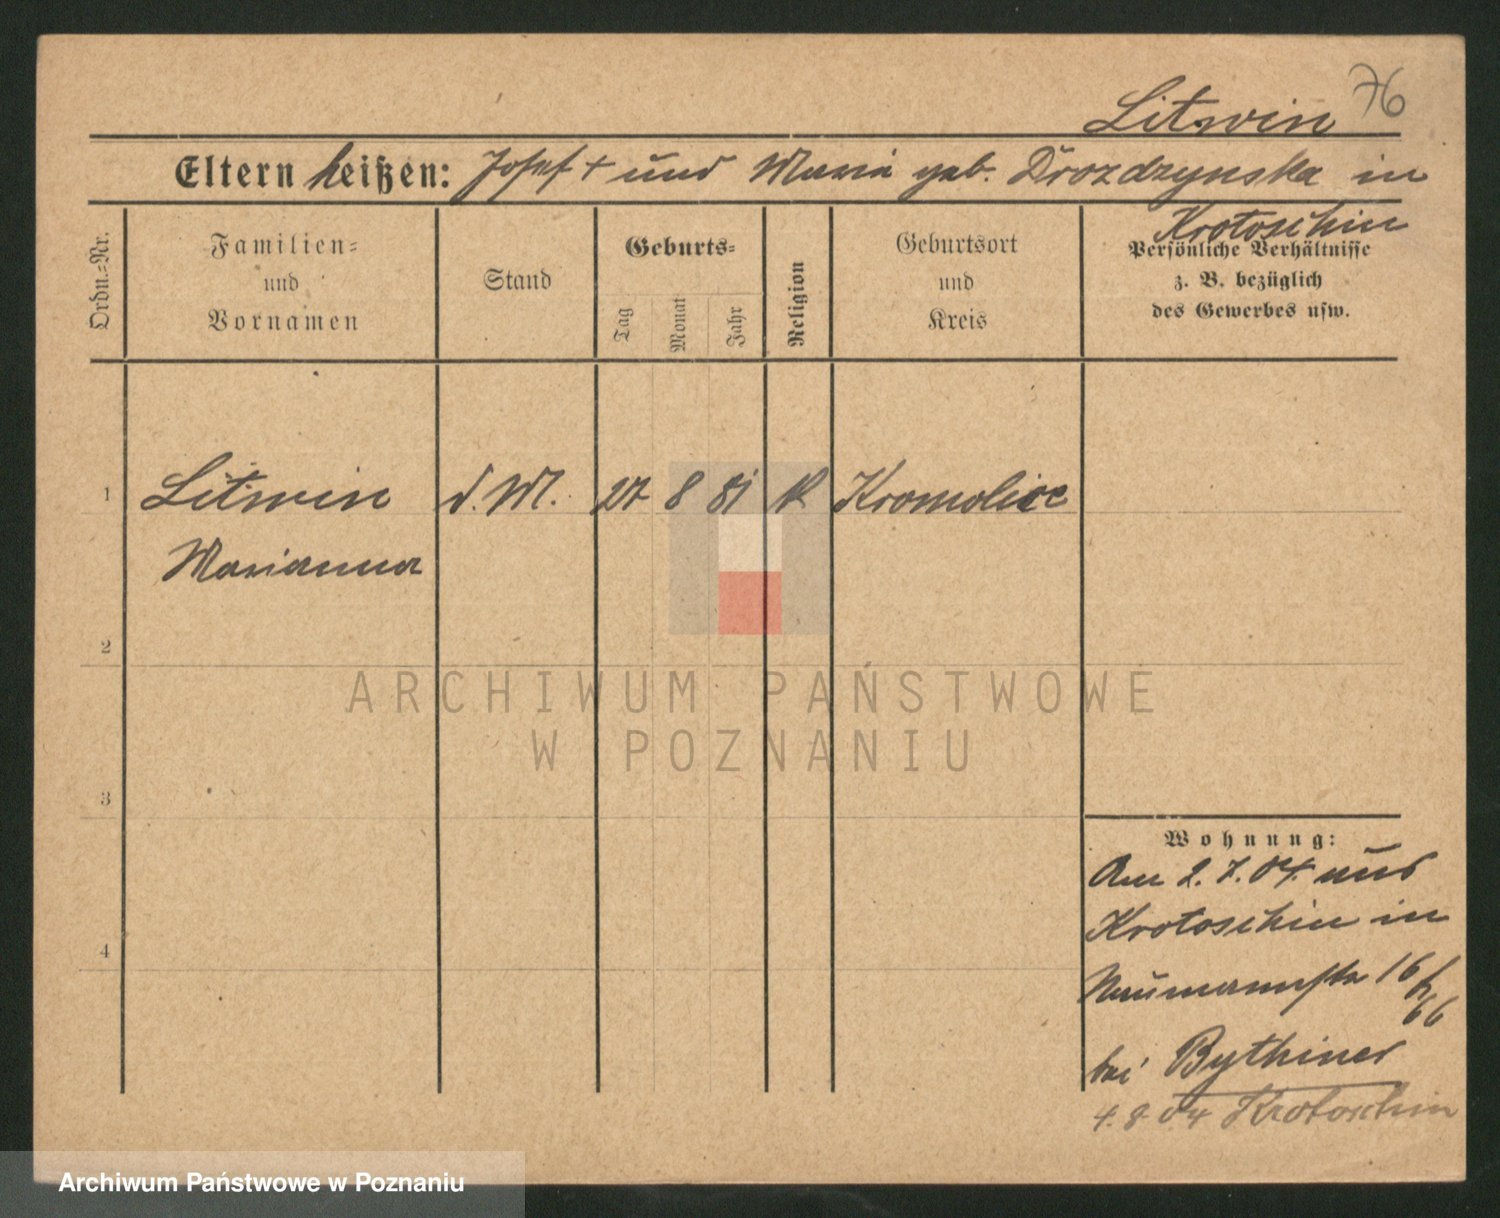 Litwin 76
Eltern heißen: Josef + und Maria geb. Drozdzynska in
Krotoschin
Ordn.=Nr.
Familien=
und
Vornamen
Stand
Geburts=
Tag
Monat
Jahr
Religion
Geburtsort
und
Kreis
Persönliche Verhältnisse
z. B. bezüglich
des Gewerbes usw.
1 Litwin d. M. 27 8 81 k Kromolice
Marianna
2
ARCHIWUM PAŃSTWOWE
W POZNANIU
3
Wohnung:
Am 2. 7. 04. aus
Krotoschin in
4
Naumannstr 16
bei Bythiner
4. 8. 04 Krotoschin
Archiwum Państwowe w Poznaniu